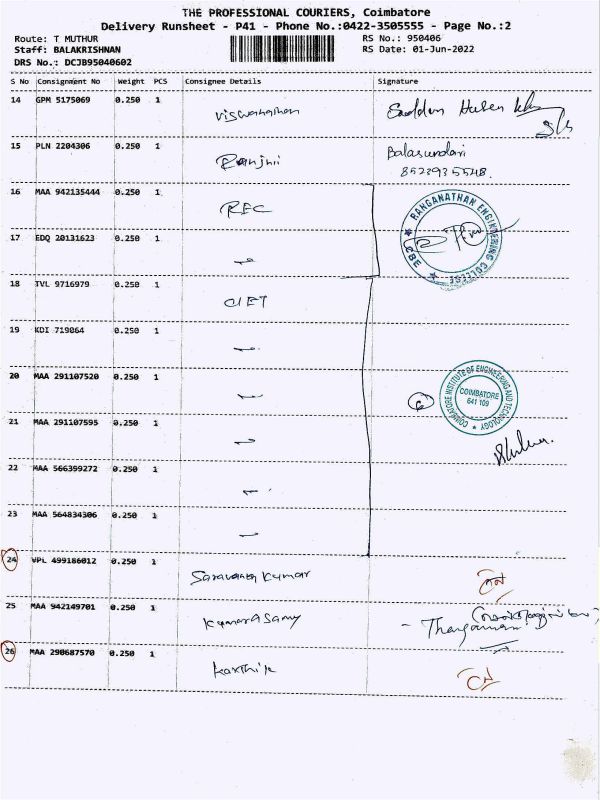 THE PROFESSIONAL COURIERS, Coimbatore
Delivery Runsheet - P41 - Phone No.:0422-3505555 - Page No.:2
Route: T MUTHUR RS No.: 950406
Staff: BALAKRISHNAN RS Date: 01-Jun-2022
DRS No.: DCJB95040602
S No Consignment No Weight PCS Consignee Details Signature
14 GPM 5175069 0.250 1 Viswanathan
15 PLN 2204306 0.250 1 Ranjni Balasundari
8523935548.
16 MAA 942135444 0.250 1 REC
RANGANATHAN ENGINEERING COLLEGE
CBE
17 EDQ 20131623 0.250 1
18 TVL 9716979 0.250 1 CIET
19 KDI 719064 0.250 1
20 MAA 291107520 0.250 1
COIMBATORE INSTITUTE OF ENGINEERING AND TECHNOLOGY
COIMBATORE
641 109
21 MAA 291107595 0.250 1
22 MAA 566399272 0.250 1
23 MAA 564834306 0.250 1
24 VPL 499186012 0.250 1 Saravana Kumar
25 MAA 942149701 0.250 1 Kumarasamy
26 MAA 290687570 0.250 1 Karthik